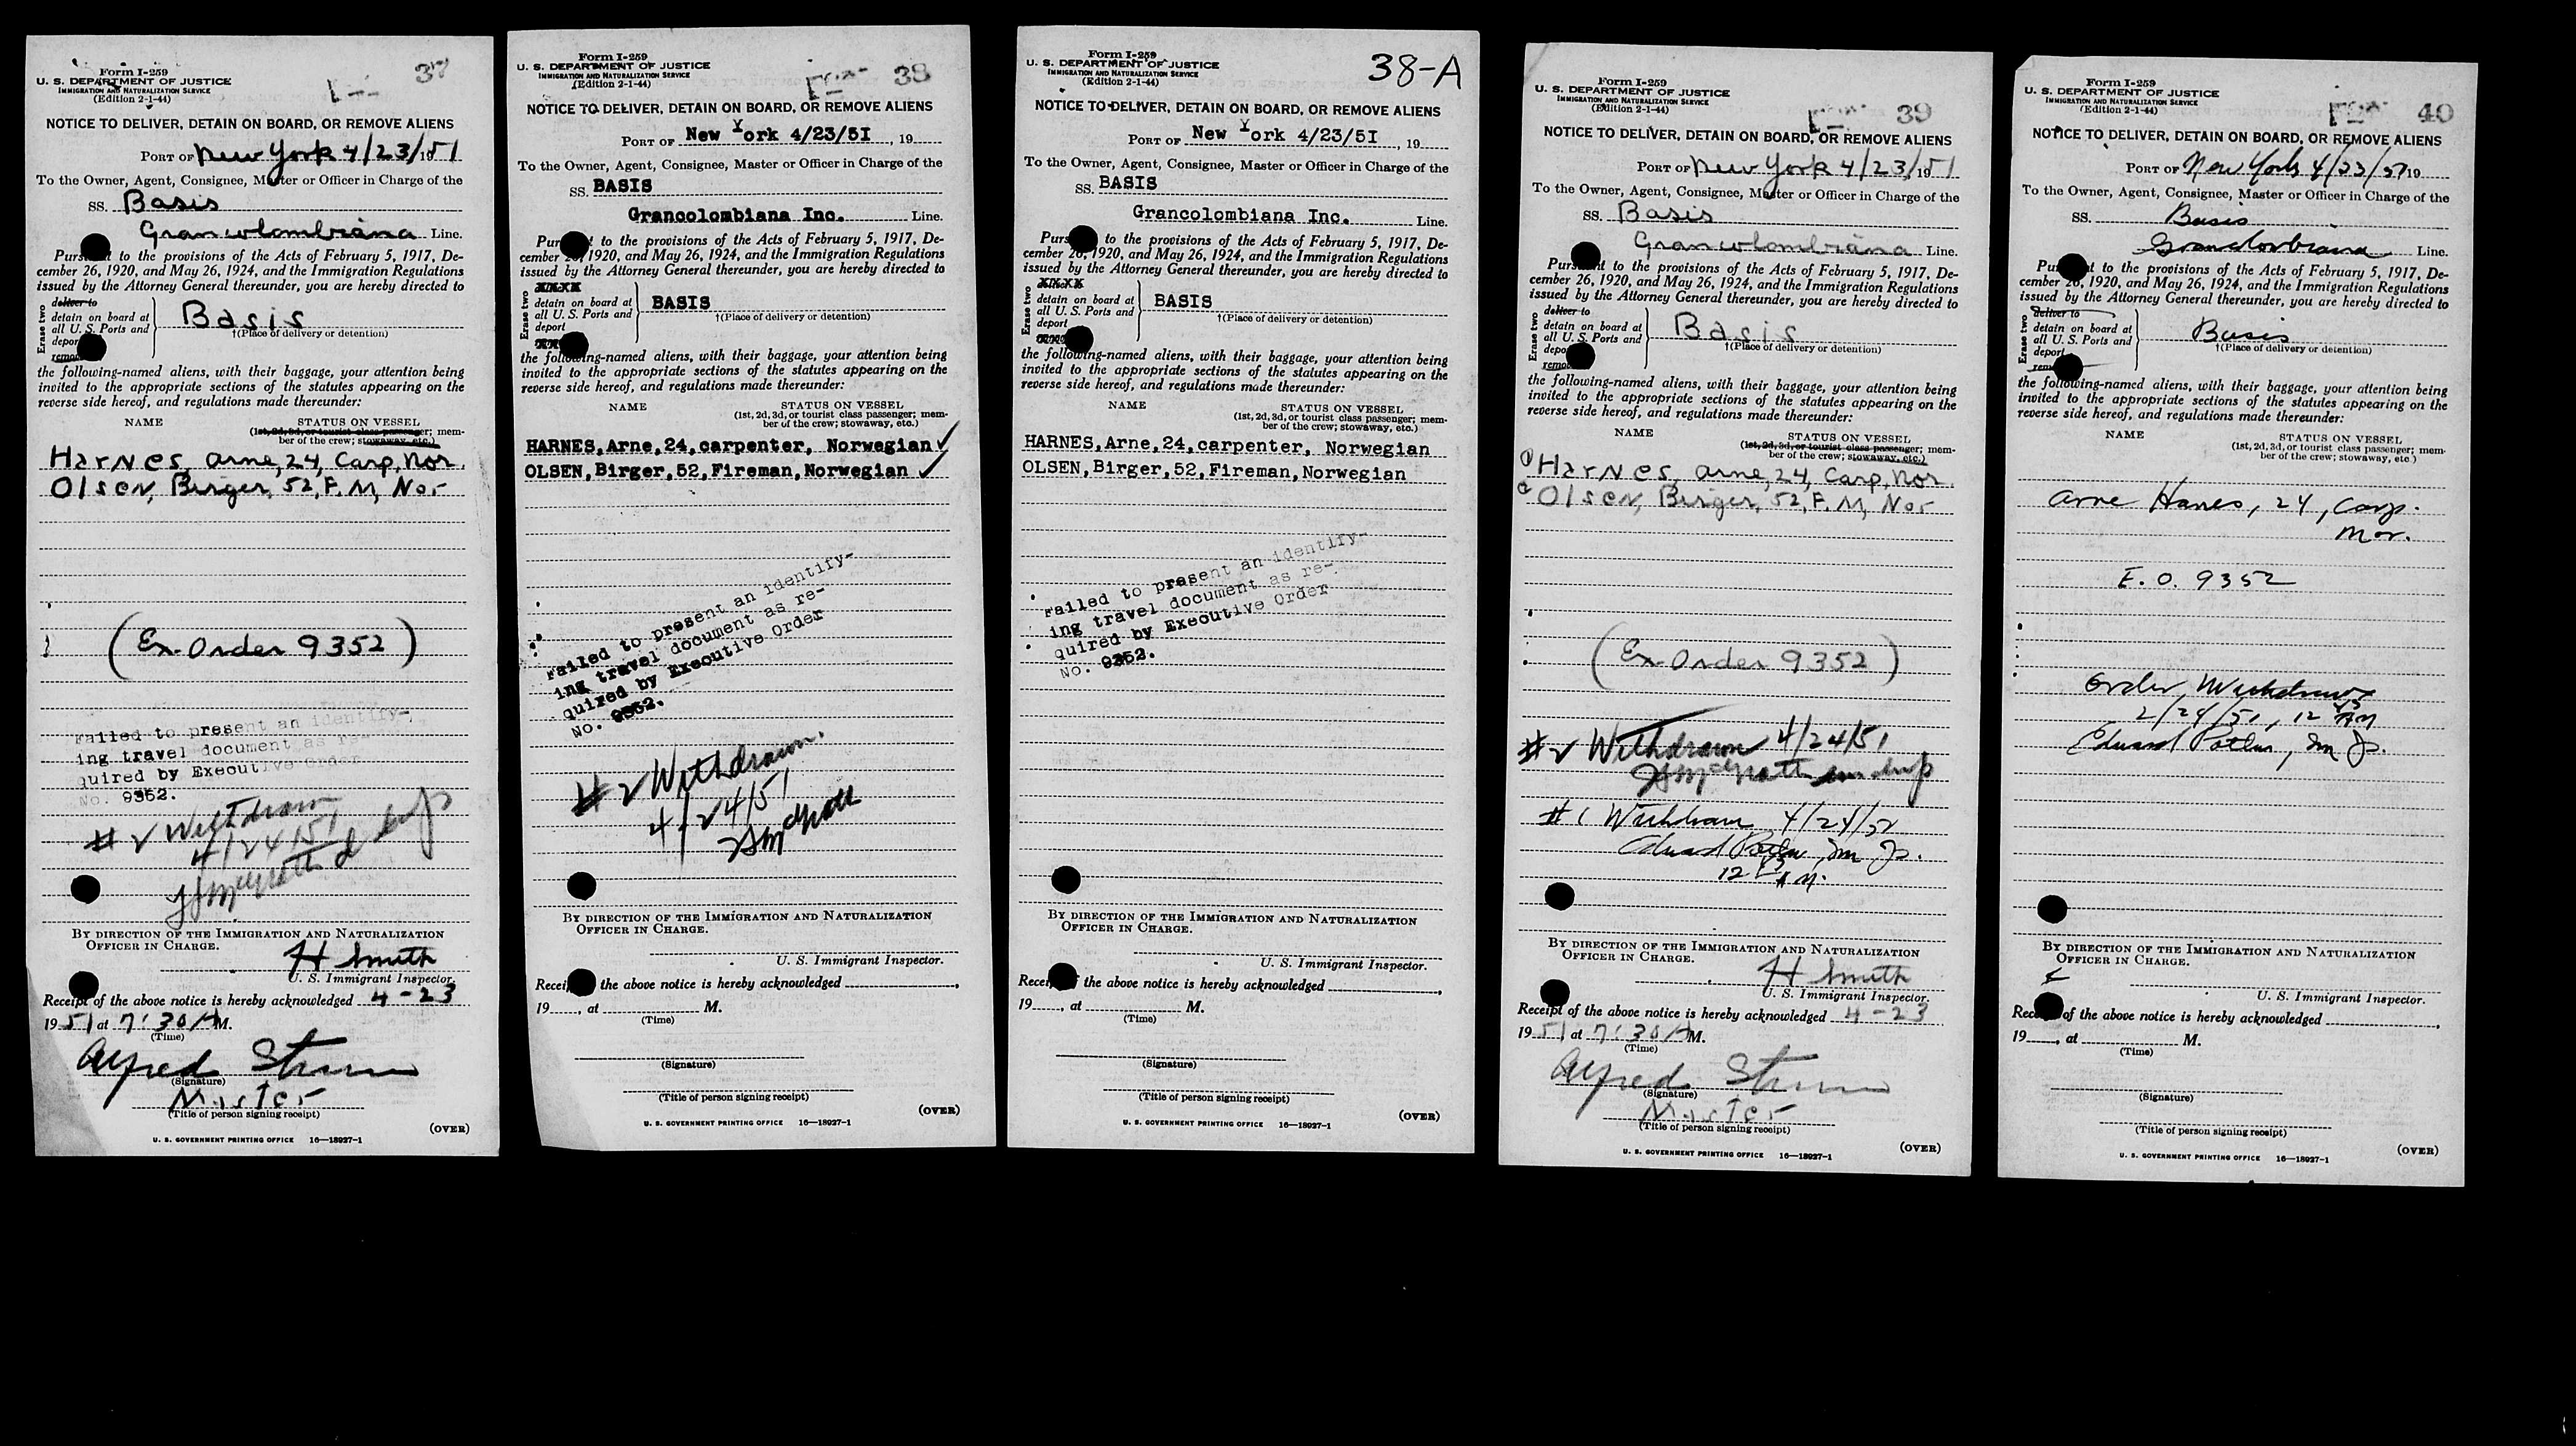 Form I-259
U. S. DEPARTMENT OF JUSTICE
IMMIGRATION AND NATURALIZATION SERVICE
(Edition 2-1-44)
37
NOTICE TO DELIVER, DETAIN ON BOARD, OR REMOVE ALIENS
PORT OF New York 4/23/1951
To the Owner, Agent, Consignee, Master or Officer in Charge of the
SS. Basis
Grancolombiana Line.
Pursuant to the provisions of the Acts of February 5, 1917, De-
cember 26, 1920, and May 26, 1924, and the Immigration Regulations
issued by the Attorney General thereunder, you are hereby directed to
Erase two
deliver to
detain on board at
all U. S. Ports and
deport
remove
Basis
†(Place of delivery or detention)
the following-named aliens, with their baggage, your attention being
invited to the appropriate sections of the statutes appearing on the
reverse side hereof, and regulations made thereunder:
NAME STATUS ON VESSEL
(1st, 2d, 3d, or tourist class passenger; mem-
ber of the crew; stowaway, etc.)
Harnes, Arne, 24, Carp, Nor.
Olsen, Birger, 52, F. M, Nor
(Ex. Order 9352)
Failed to present an identify-
ing travel document as re-
quired by Executive Order
No. 9352.
#2 Withdrawn
4/24/51
BY DIRECTION OF THE IMMIGRATION AND NATURALIZATION
OFFICER IN CHARGE.
H Smith
U. S. Immigrant Inspector.
Receipt of the above notice is hereby acknowledged 4-23
1951 at 7:30 A M.
(Time)
Alfred
(Signature)
Master
(Title of person signing receipt)
(OVER)
U. S. GOVERNMENT PRINTING OFFICE 16—18927-1
Form I-259
U. S. DEPARTMENT OF JUSTICE
IMMIGRATION AND NATURALIZATION SERVICE
(Edition 2-1-44)
38
NOTICE TO DELIVER, DETAIN ON BOARD, OR REMOVE ALIENS
PORT OF New York 4/23/5I, 19
To the Owner, Agent, Consignee, Master or Officer in Charge of the
SS. BASIS
Grancolombiana Inc. Line.
Pursuant to the provisions of the Acts of February 5, 1917, De-
cember 26, 1920, and May 26, 1924, and the Immigration Regulations
issued by the Attorney General thereunder, you are hereby directed to
Erase two
detain on board at
all U. S. Ports and
deport
BASIS
†(Place of delivery or detention)
the following-named aliens, with their baggage, your attention being
invited to the appropriate sections of the statutes appearing on the
reverse side hereof, and regulations made thereunder:
NAME STATUS ON VESSEL
(1st, 2d, 3d, or tourist class passenger; mem-
ber of the crew; stowaway, etc.)
HARNES, Arne, 24, carpenter, Norwegian ✓
OLSEN, Birger, 52, Fireman, Norwegian ✓
Failed to present an identify-
ing travel document as re-
quired by Executive Order
No. 9352.
#2 Withdrawn.
4/24/51
BY DIRECTION OF THE IMMIGRATION AND NATURALIZATION
OFFICER IN CHARGE.
U. S. Immigrant Inspector.
Receipt of the above notice is hereby acknowledged
19, at M.
(Time)
(Signature)
(Title of person signing receipt)
(OVER)
U. S. GOVERNMENT PRINTING OFFICE 16—18927-1
Form I-259
U. S. DEPARTMENT OF JUSTICE
IMMIGRATION AND NATURALIZATION SERVICE
(Edition 2-1-44)
38-A
NOTICE TO DELIVER, DETAIN ON BOARD, OR REMOVE ALIENS
PORT OF New York 4/23/5I, 19
To the Owner, Agent, Consignee, Master or Officer in Charge of the
SS. BASIS
Grancolombiana Inc. Line.
Pursuant to the provisions of the Acts of February 5, 1917, De-
cember 26, 1920, and May 26, 1924, and the Immigration Regulations
issued by the Attorney General thereunder, you are hereby directed to
Erase two
detain on board at
all U. S. Ports and
deport
BASIS
†(Place of delivery or detention)
the following-named aliens, with their baggage, your attention being
invited to the appropriate sections of the statutes appearing on the
reverse side hereof, and regulations made thereunder:
NAME STATUS ON VESSEL
(1st, 2d, 3d, or tourist class passenger; mem-
ber of the crew; stowaway, etc.)
HARNES, Arne, 24, carpenter, Norwegian
OLSEN, Birger, 52, Fireman, Norwegian
Failed to present an identify-
ing travel document as re-
quired by Executive Order
No. 9352.
BY DIRECTION OF THE IMMIGRATION AND NATURALIZATION
OFFICER IN CHARGE.
U. S. Immigrant Inspector.
Receipt of the above notice is hereby acknowledged
19, at M.
(Time)
(Signature)
(Title of person signing receipt)
(OVER)
U. S. GOVERNMENT PRINTING OFFICE 16—18927-1
Form I-259
U. S. DEPARTMENT OF JUSTICE
IMMIGRATION AND NATURALIZATION SERVICE
(Edition 2-1-44)
39
NOTICE TO DELIVER, DETAIN ON BOARD, OR REMOVE ALIENS
PORT OF New York 4/23/, 1951
To the Owner, Agent, Consignee, Master or Officer in Charge of the
SS. Basis
Grancolombiana Line.
Pursuant to the provisions of the Acts of February 5, 1917, De-
cember 26, 1920, and May 26, 1924, and the Immigration Regulations
issued by the Attorney General thereunder, you are hereby directed to
Erase two
deliver to
detain on board at
all U. S. Ports and
deport
remove
Basis
†(Place of delivery or detention)
the following-named aliens, with their baggage, your attention being
invited to the appropriate sections of the statutes appearing on the
reverse side hereof, and regulations made thereunder:
NAME STATUS ON VESSEL
(1st, 2d, 3d, or tourist class passenger; mem-
ber of the crew; stowaway, etc.)
Harnes, Arne, 24, Carp, Nor.
Olsen, Birger, 52, F. M, Nor
(Ex. Order 9352)
#2 Withdrawn 4/24/51
#1 Withdrawn 4/24/52
12 A M.
BY DIRECTION OF THE IMMIGRATION AND NATURALIZATION
OFFICER IN CHARGE.
H Smith
U. S. Immigrant Inspector.
Receipt of the above notice is hereby acknowledged 4-23
1951 at 7:30 A M.
(Time)
Alfred
(Signature)
Master
(Title of person signing receipt)
(OVER)
U. S. GOVERNMENT PRINTING OFFICE 16—18927-1
Form I-259
U. S. DEPARTMENT OF JUSTICE
IMMIGRATION AND NATURALIZATION SERVICE
(Edition 2-1-44)
40
NOTICE TO DELIVER, DETAIN ON BOARD, OR REMOVE ALIENS
PORT OF New York 4/23/51 19
To the Owner, Agent, Consignee, Master or Officer in Charge of the
SS. Basis
Line.
Pursuant to the provisions of the Acts of February 5, 1917, De-
cember 26, 1920, and May 26, 1924, and the Immigration Regulations
issued by the Attorney General thereunder, you are hereby directed to
Erase two
deliver to
detain on board at
all U. S. Ports and
deport
remove
Basis
†(Place of delivery or detention)
the following-named aliens, with their baggage, your attention being
invited to the appropriate sections of the statutes appearing on the
reverse side hereof, and regulations made thereunder:
NAME STATUS ON VESSEL
(1st, 2d, 3d, or tourist class passenger; mem-
ber of the crew; stowaway, etc.)
Arne Hanes, 24, Carp.
Nor.
E. O. 9352
Order Withdrawn
2/24/51, 12 AM
BY DIRECTION OF THE IMMIGRATION AND NATURALIZATION
OFFICER IN CHARGE.
U. S. Immigrant Inspector.
Receipt of the above notice is hereby acknowledged
19, at M.
(Time)
(Signature)
(Title of person signing receipt)
(OVER)
U. S. GOVERNMENT PRINTING OFFICE 16—18927-1